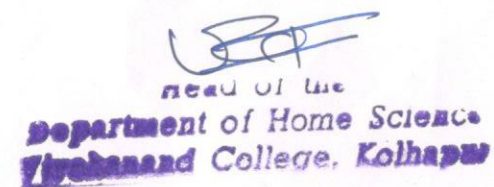 Head of the
Department of Home Science
Vivekanand College, Kolhapur